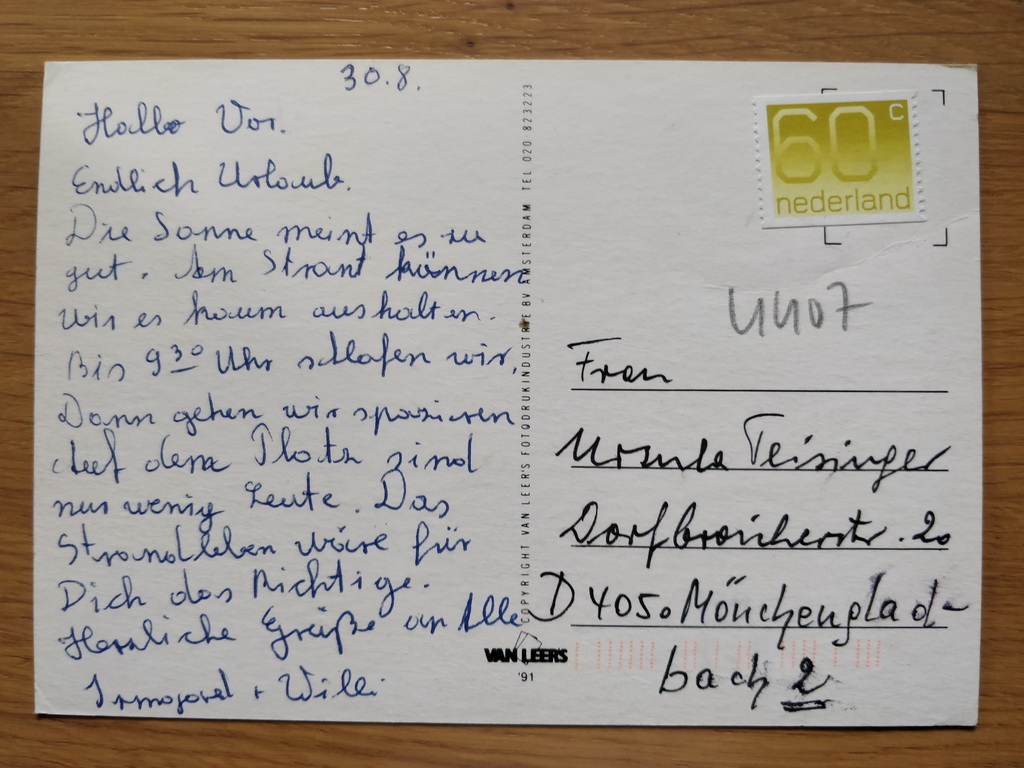 30.8.
Hallo
Endlich Urlaub.
Die Sonne meint es zu
gut. Am Strant können
wir es kaum aushalten.
Bis 9 30 Uhr schlafen wir,
Dann gehen wir spazieren
Auf dem Platz sind
nur wenig Leute. Das
Strandleben wäre für
Dich das Richtige.
Herzliche Grüße an Alle
Irmgard + Willi
COPYRIGHT VAN LEER'S FOTODRUKINDUSTRIE BV AMSTERDAM TEL 020 823223
VAN LEER'S
'91
60 c
nederland
4407
Frau
Ursula Teisinger
Dorfbroicherstr. 20
D 4050 Mönchenglad-
bach 2